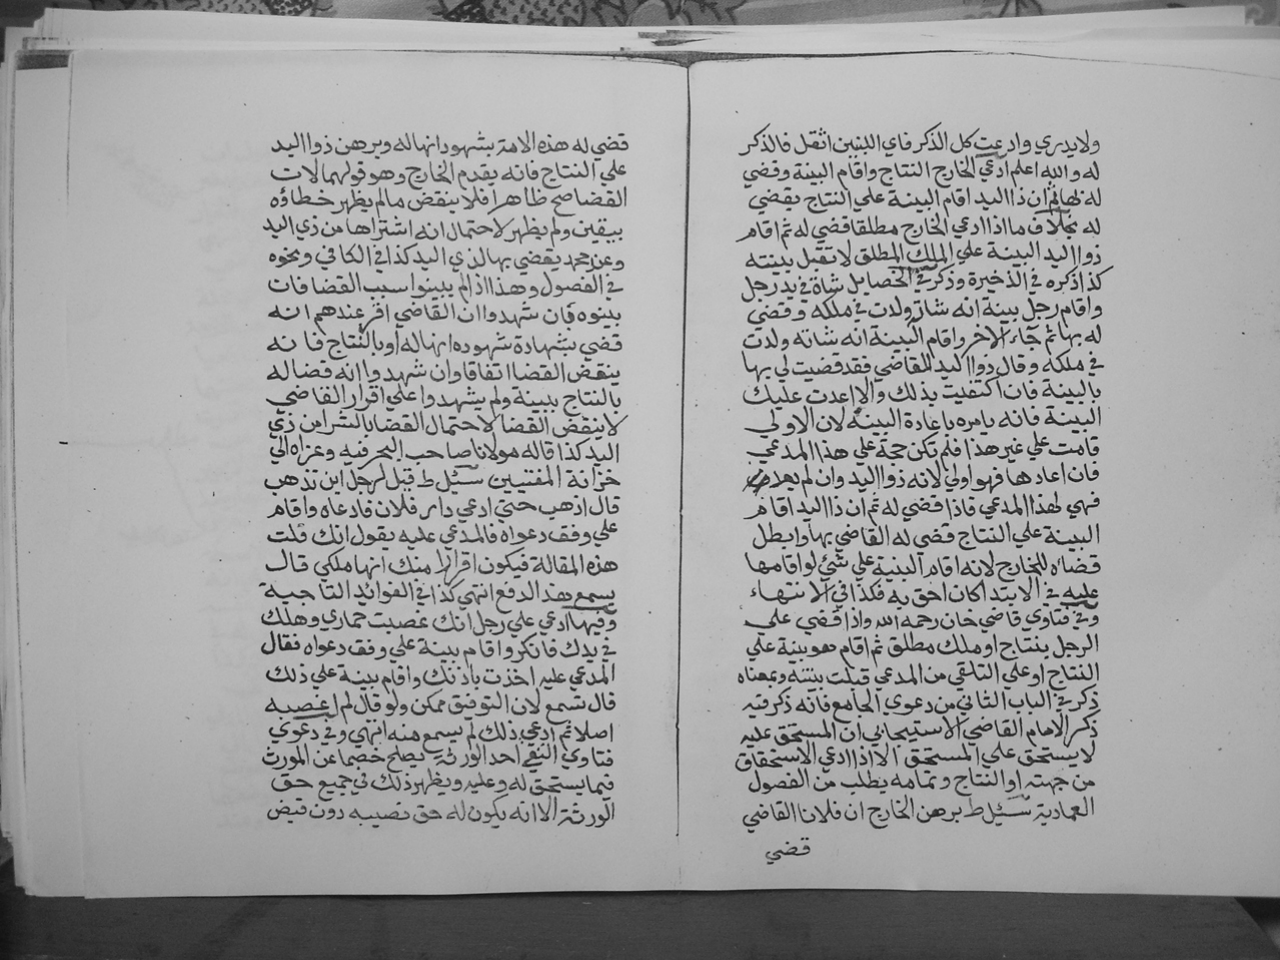 ولايدري وادعت كل الذكر فاي اللبنين اثقل فالذكر
له والله اعلم ادعي الخارج النتاج واقام البينة وقضي
له بها ثم ان ذا اليد اقام البينة علي النتاج يقضي
له بخلاف ما اذا ادعي الخارج مطلقا قضي له ثم اقام
ذوا اليد البينة علي الملك المطلق لا تقبل بينته
كذا ذكره في الذخيرة وذكر في الخصايل شاة في يد رجل
واقام رجل بينة انه شاته ولدت في ملكه وقضي
له بها ثم جاء الاخر واقام البينة انه شاته ولدت
في ملكه وقال ذوا اليد للقاضي فقد قضيت لي بها
بالبينة فان اكتفيت بذلك والا اعدت عليك
البينة فانه يامره باعادة البينة لان الاولي
قامت علي غير هذا فلم تكن حجة علي هذا المدعي
فان اعادها فهو اولي لانه ذوا اليد وان لم يعد
فهي لهذا المدعي فاذا قضي له ثم ان ذا اليد اقام
البينة علي النتاج قضي له القاضي بها وابطل
قضاه للخارج لانه اقام البينة علي شئ لو اقامها
عليه في الابتدا كان احق به فكذا في الانتهاء
وفي فتاوي قاضي خان رحمه الله واذا قضي علي
الرجل بنتاج او ملك مطلق ثم اقام هو بينة علي
النتاج او علي التلقي من المدعي قبلت بينته وبمعناه
ذكر في الباب الثاني من دعوي الجامع فانه ذكر فيه
ذكر الامام القاضي الاسبيجابي ان المستحق عليه
لا يستحق علي المستحق الا اذا ادعي الاستحقاق
من جهته او النتاج وتمامه يطلب من الفصول
العمادية سئيل ط برهن الخارج ان فلانا القاضي
قضي
قضي له هذه الامة بشهود انها له وبرهن ذوا اليد
علي النتاج فانه يقدم الخارج وهو قولهما لان
القضا صح ظاهرا فلا ينقض ما لم يظهر خطاؤه
بيقين ولم يظهر لاحتمال انه اشتراها من ذي اليد
وعن محمد يقضي بها لذي اليد كذا في الكافي ونحوه
في الفصول وهذا اذا لم يبينوا سبب القضا فان
بينوه فان شهدوا ان القاضي اقر عندهم انه
قضي بشهادة شهوده انها له او بالنتاج فانه
ينقض القضا اتفاقا وان شهدوا انه قضا له
بالنتاج ببينة ولم يشهدوا علي اقرار القاضي
لا ينقض القضا لاحتمال القضا بالشرا من ذي
اليد كذا قاله مولانا صاحب البحر فيه وعزاه الي
خزانة المفتيين سئيل ط قيل لرجل اين تذهب
قال اذهب حتي ادعي دار فلان فادعاه واقام
علي وفق دعواه فالمدعي عليه يقول انك قلت
هذه المقالة فيكون اقرارا منك انها ملكي قال
يسمع هذا الدفع انتهي كذا في الفوائد التاجية
وفيها ادعي علي رجل انك غصبت حماري وهلك
في يدك فانكر واقام بينة علي وفق دعواه فقال
المدعي عليه اخذت باذنك واقام بينة علي ذلك
قال تسمع لان التوفيق ممكن ولو قال لم اغصبه
اصلا ثم ادعي ذلك لم يسمع منه انتهي وفي دعوي
فتاوي النسفي احد الورثة يصلح خصما عن المورث
فيما يستحق له وعليه ويظهر ذلك في جميع حق
الورثة الا انه يكون له حق نصيبه دون قبض